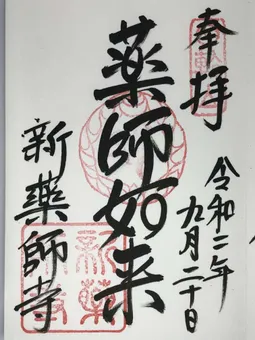 奉拝
令和二年
九月二十日
薬師如来
新薬師寺